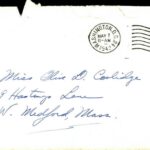 WASHINGTON, D.C.
MAY 1
6-AM
1942
Miss Olive D. Coolidge
9 Hastings Lane
W. Medford, Mass.